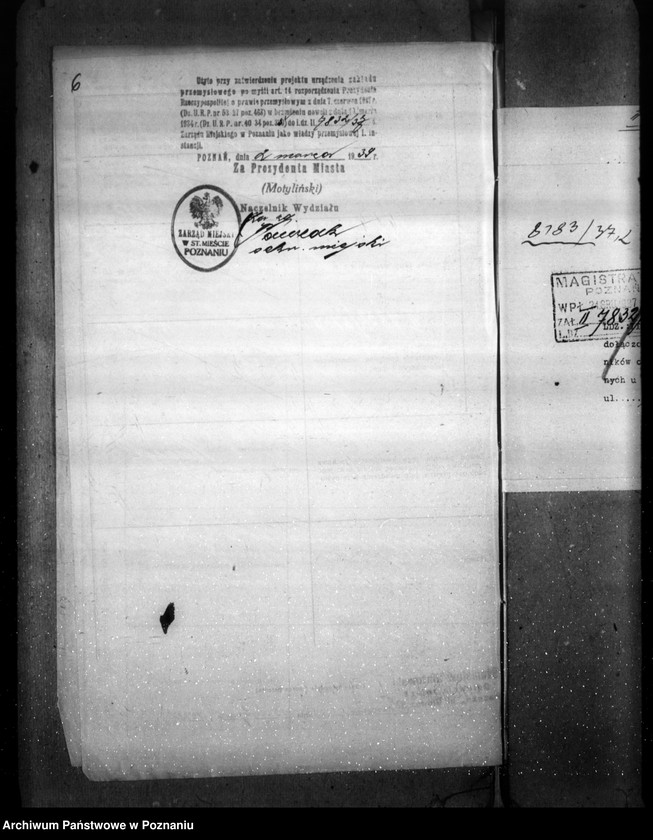 6
Użyto przy zatwierdzeniu projektu urządzenia zakładu
przemysłowego po myśli art. 14. rozporządzenia Prezydenta
Rzeczypospolitej o prawie przemysłowym z dnia 7. czerwca 1927 r.
(Dz. U. R. P. nr 53 27 poz. 468) w brzmieniu noweli z dnia
1934 r. (Dz. U. R. P. nr. 40 34 poz. do l. dz. II 7832/37
Zarząd Miejskiego w Poznaniu jako władzy przemysłowej I. in-
stancji.
POZNAŃ, dnia 2 marca 1938 r.
Za Prezydenta Miasta
(Motyliński)
Naczelnik Wydziału
sekr. miejski
ZARZĄD MIEJSKI
W ST. MIEŚCIE
POZNANIU
8183/37.
MAGISTRA
POZNAŃ
WPŁ.
ZAŁ.
L. DZ. II 7832
Ldz.
dołączo
ników o
nych u
ul.....
Archiwum Państwowe w Poznaniu